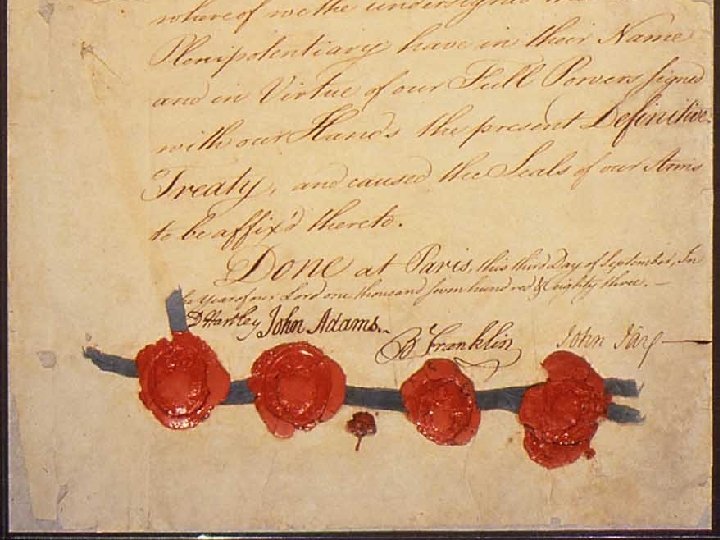 whereof we the undersigned
Plenipotentiary have in their Name
and in Virtue of our Full Powers signed
with our Hands the present Definitive
Treaty, and caused the Seals of our Arms
to be affix'd thereto.
Done at Paris, this third Day of September, In
the Year of our Lord one thousand seven hundred & eighty three.
D Hartley John Adams. B Franklin John Jay